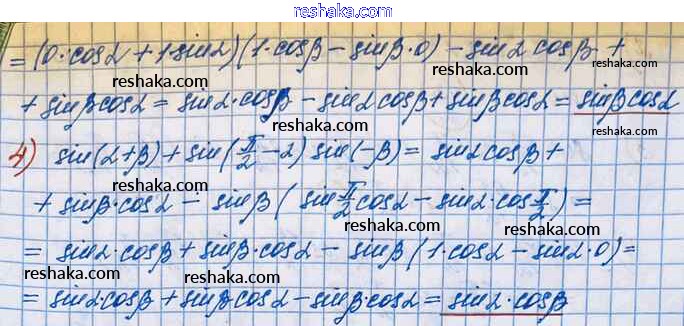 reshaka.com
= (0·cosα + 1·sinα)(1·cosβ − sinβ·0) − sinα cosβ +
reshaka.com reshaka.com reshaka.com
+ sinβcosα = sinα·cosβ − sinα cosβ + sinβcosα = sinβcosα
reshaka.com reshaka.com
4) sin(α+β) + sin(π/2 − α) sin(−β) = sinα cosβ +
reshaka.com reshaka.com
+ sinβ·cosα − sinβ (sin π/2 cosα − sinα·cos π/2) =
reshaka.com reshaka.com
= sinα·cosβ + sinβ·cosα − sinβ (1·cosα − sinα·0) =
reshaka.com reshaka.com reshaka.com
= sinα·cosβ + sinβ·cosα − sinβ·cosα = sinα·cosβ
reshaka.com